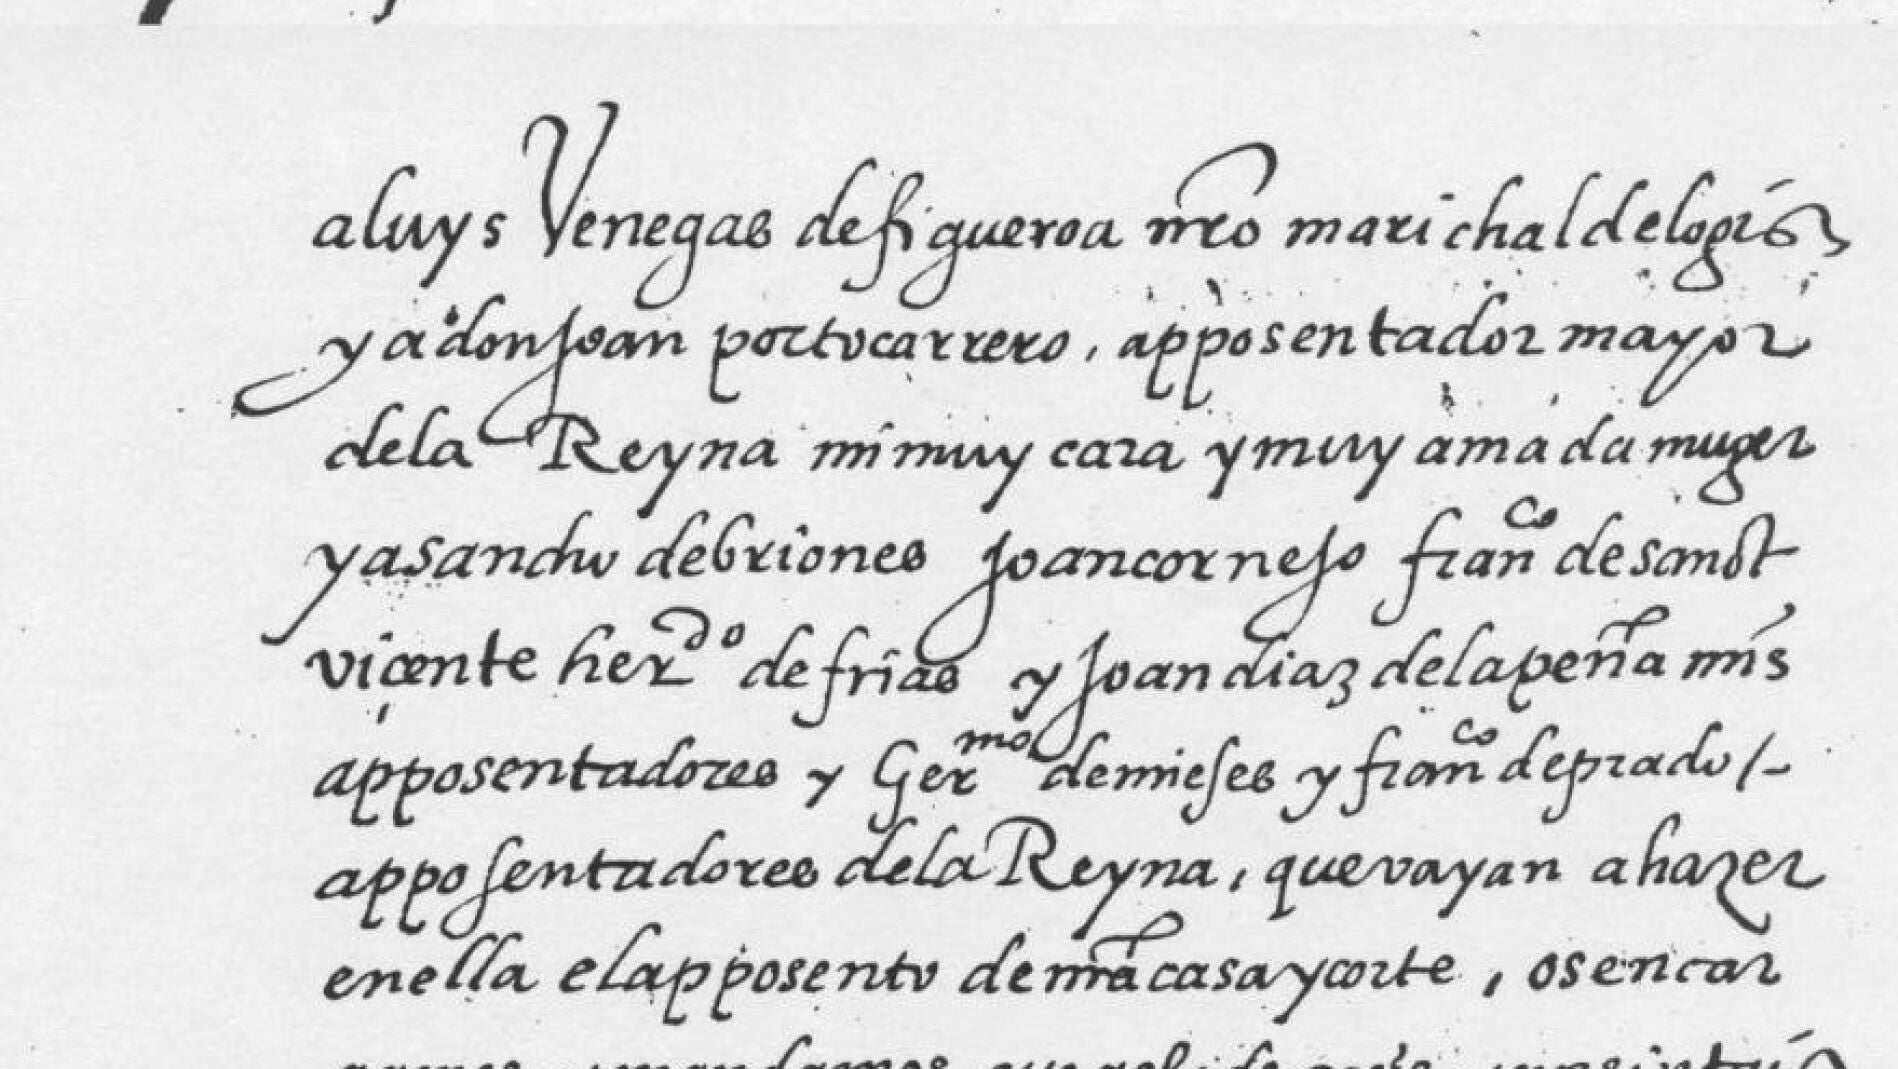 a luys Venegas de figueroa nro marichal de logis
y a don Joan portocarrero, apposentador mayor
de la Reyna mi muy cara y muy amada muger
y a sancho de briones Joan cornejo franco de sanct
vicente herdo de frias y Joan diaz de la peña mis
apposentadores y Germo de mieses y franco de prado /-
apposentadores de la Reyna, que vayan a hazer
en ella el apposento de nra casa y corte, os encar